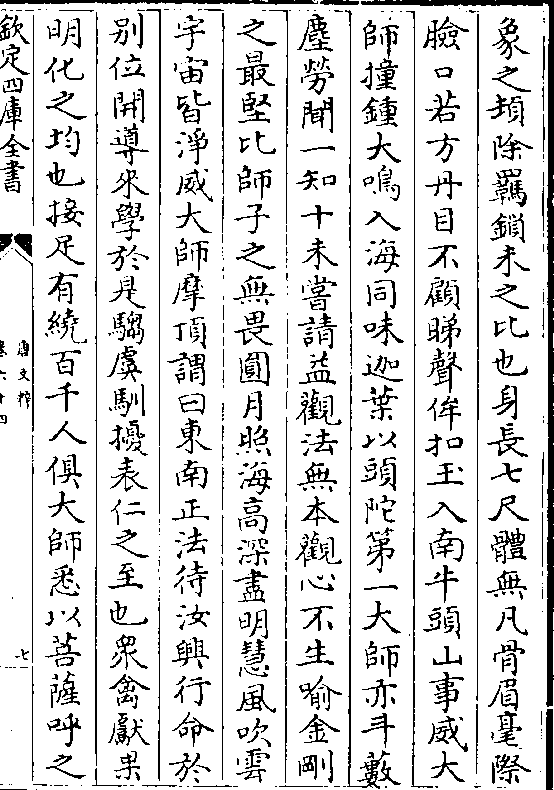 象之頄除羈鎖未之比也身長七尺體無凡骨眉毫際
臉口若方丹目不顧睇聲侔扣玉入南牛頭山事威大
師撞鍾大鳴入海同味迦葉以頭陀第一大師亦斗藪
塵勞聞一知十未嘗請益觀法無本觀心不生喻金剛
之最堅比師子之無畏圓月照海高深盡明慧風吹雲
宇宙皆淨威大師摩頂謂曰東南正法待汝興行命於
别位開導來學於是騶虞馴擾表仁之至也衆禽獻果
明化之均也接足有繞百千人俱大師悉以菩薩呼之
欽定四庫全書
唐文粹
卷六十四
七